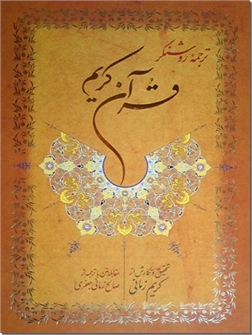 ترجمهٔ روشنگر
قرآن کریم
تحقیق و نگارش از
کریم زمانی
مقابله متن با ترجمه از
صالح زمانی جعفری